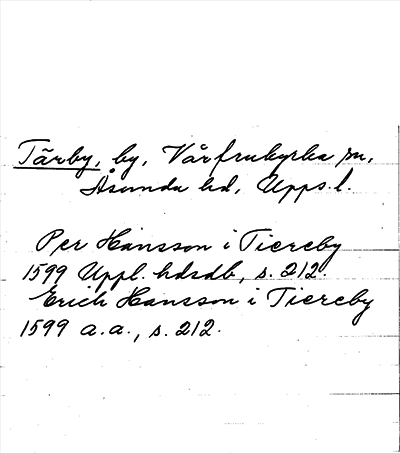 Tärby, by, Vårfrukyrka sn,
Åsunda hd, Upps. l.
Per Hansson i Tiereby
1599 Uppl. hdsdb, s. 212.
Erich Hansson i Tiereby
1599 a.a., s. 212.